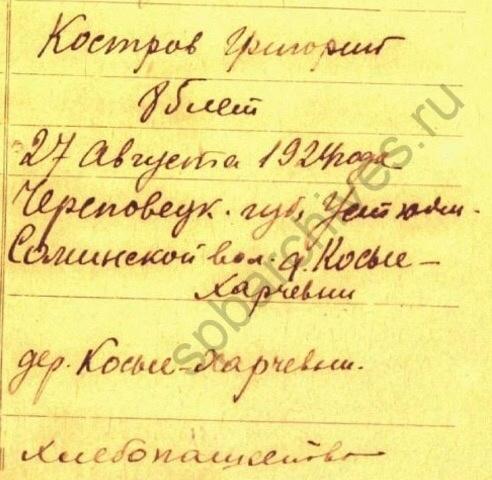 Костров Григорий
85 лет
27 Августа 1924 года
Череповецк. губ. Устюжен.
Соминской вол. д. Косые-
Харчевни
дер. Косые-Харчевни.
хлебопашество
spbarchives.ru